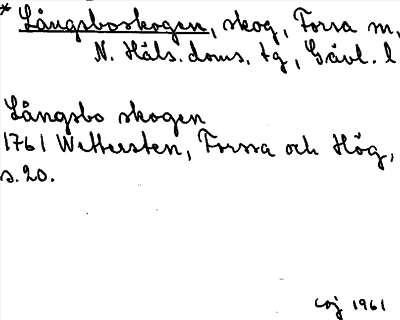 * Långsboskogen, skog, Forsa sn,
N. Häls. doms. tg, Gävl. l
Långsbo skogen
1761 Wettersten, Forssa och Hög,
s. 20.
CEJ 1961